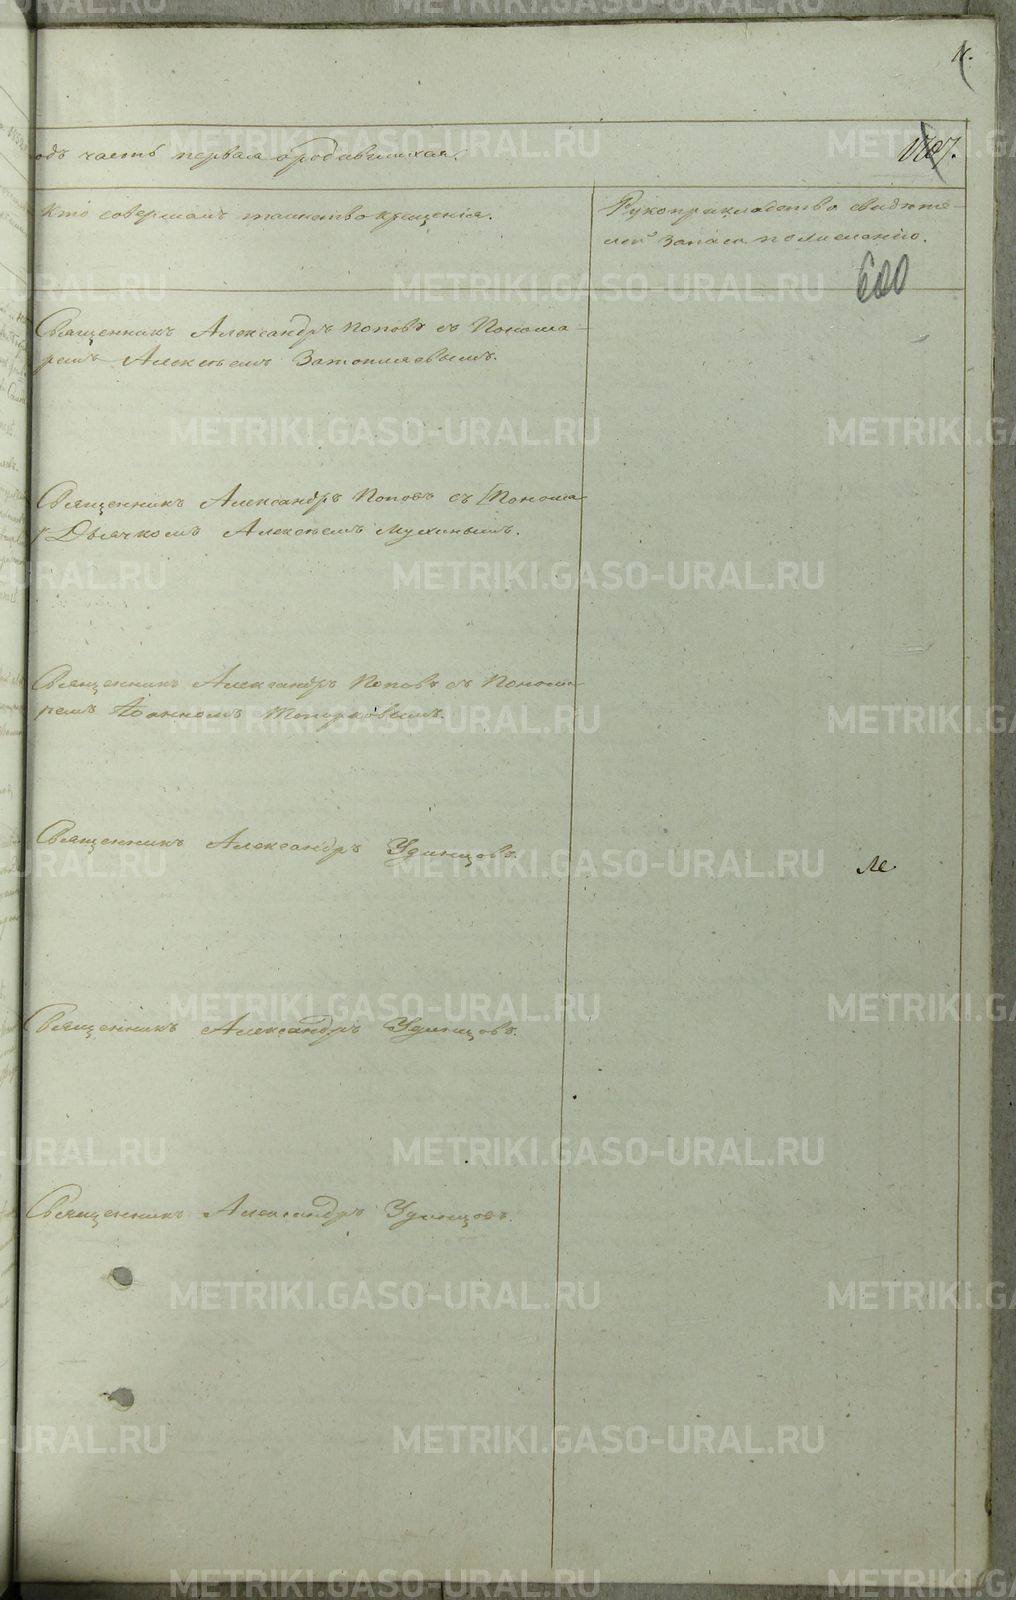 одъ часть первая о родившихся.
Кто совершалъ таинство крещенія.
Рукоприкладство свидѣте-
лей записи по желанію.
600
Священникъ Александръ Поповъ съ Понома-
ремъ Алексѣемъ Затопляевымъ.
Священникъ Александръ Поповъ съ Понома-
Дьячкомъ Алексѣемъ Мухинымъ.
Священникъ Александръ Поповъ съ Понома-
ремъ Іоанномъ Топорковымъ.
Священникъ Александръ Удинцовъ.
Священникъ Александръ Удинцовъ.
Священникъ Александръ Удинцовъ.
METRIKI.GASO-URAL.RU